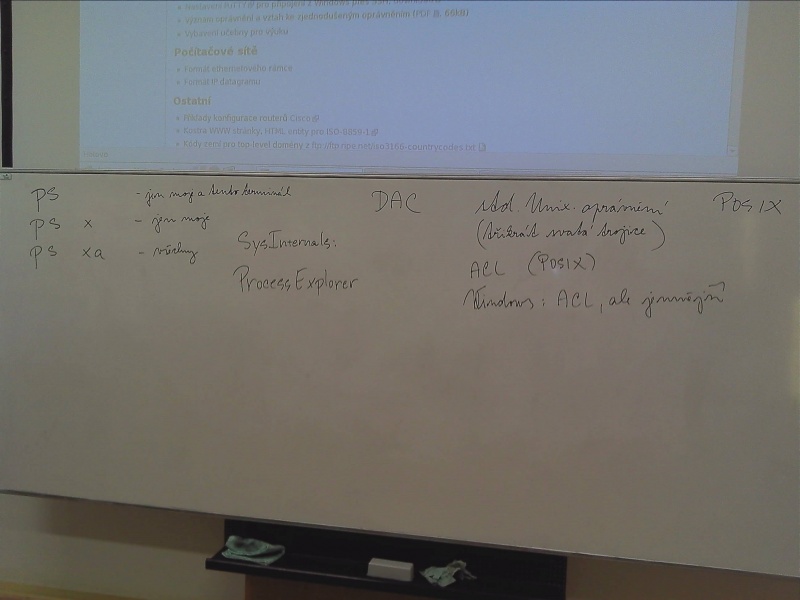 Nastavení PuTTY pro připojení z Windows přes SSH
Význam oprávnění a vztah ke zjednodušeným oprávněním (PDF, 66kB)
Vybavení učebny pro výuku
Počítačové sítě
Formát ethernetového rámce
Formát IP datagramu
Ostatní
Příklady konfigurace routerů Cisco
Kostra WWW stránky, HTML entity pro ISO-8859-1
Kódy zemí pro top-level domény z ftp://ftp.ripe.net/iso3166-countrycodes.txt
ps - jen moje a tento terminál
ps x - jen moje
ps xa - všechny
SysInternals:
ProcessExplorer
DAC
std. Unix. oprávnění
(třikrát svatá trojice)
ACL (POSIX)
Windows: ACL, ale jemnější
POSIX